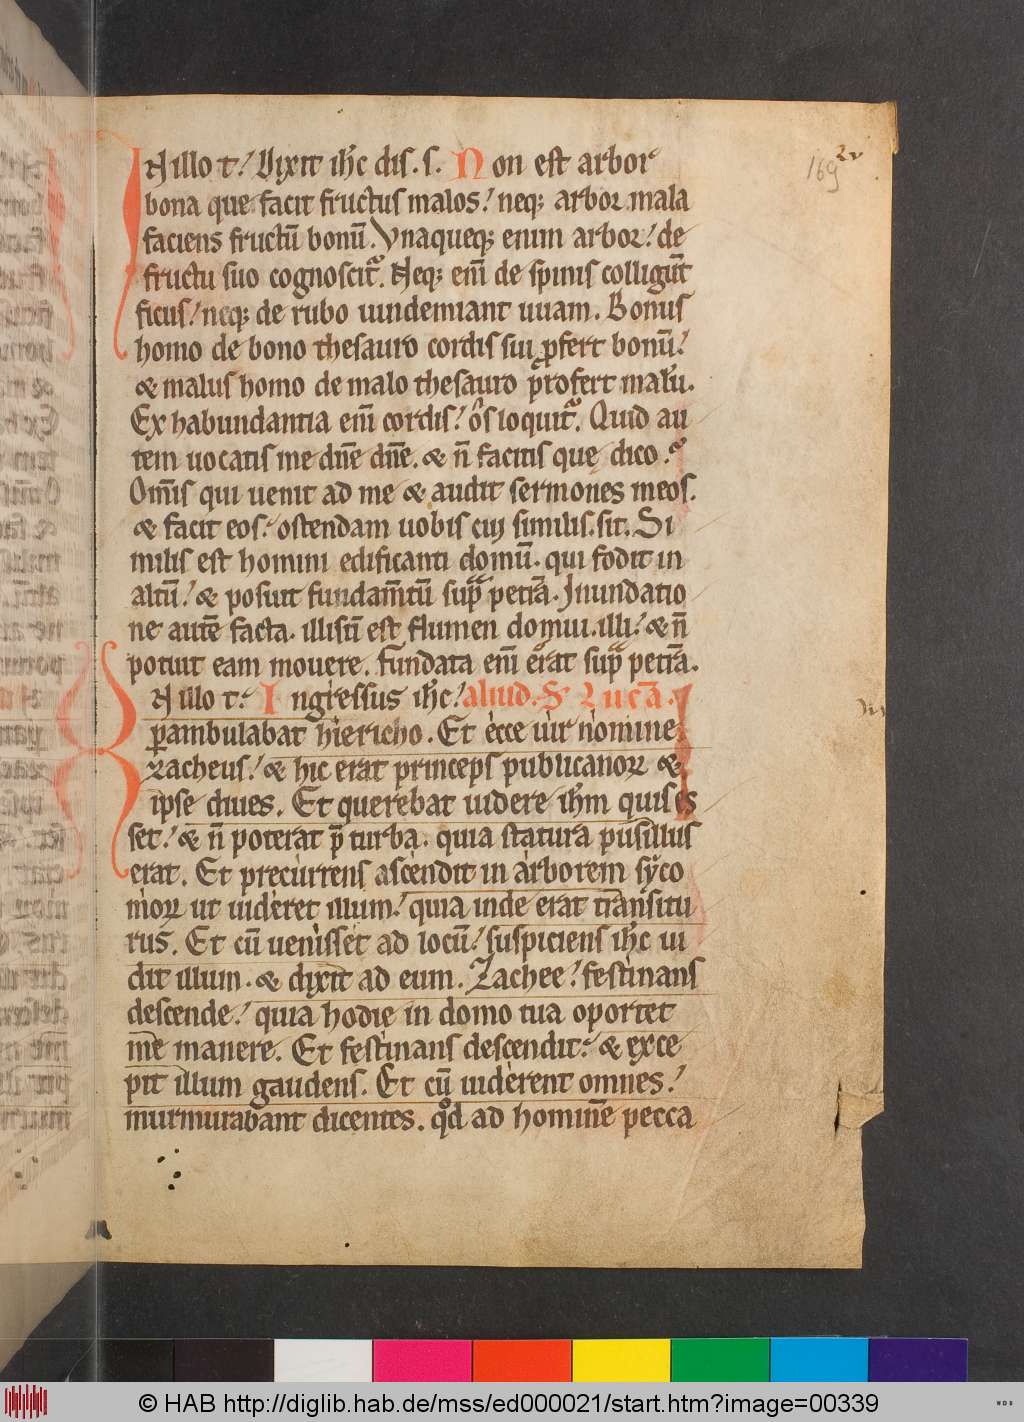 169
22
IN illo t. Dixit ih̄c dis. s. Non est arbor
bona que facit fructus malos. neq; arbor mala
faciens fructū bonū. Vnaqueq; enim arbor. de
fructu suo cognoscit᷑. Neq; eni̅ de spinis colligūt
ficus. neq; de rubo uindemiant uuam. Bonus
homo de bono thesauro cordis sui ꝓfert bonū.
& malus homo de malo thesauro profert malū.
Ex habundantia eni̅ cordis. ōs loquit᷑. Quid au
tem uocatis me dn̄e dn̄e. & n̄ facitis que dico.
Om̄is qui uenit ad me & audit sermones meos.
& facit eos. ostendam uobis cuj similis. sit. Si
milis est homini edificanti domū. qui fodit in
altū. & posuit fundam̄tū supra petrā. Inundatio
ne autē facta. illisū est flumen domui. illi. & n̄
potuit eam mouere. fundata eni̅ erat supra petrā.
IN illo t. Ingressus ih̄c. aliud. S. Lucā.
ꝑambulabat hiericho. Et ecce uir nomine
zacheus. & hic erat princeps publicanoꝝ &
ipse diues. Et querebat uidere ih̄m quis es
set. & n̄ poterat p̄ turba. quia statura pusillus
erat. Et precurrens ascendit in arborem syco
moꝝ ut uideret illum. quia inde erat transitu
rus. Et cū uenisset ad locū. suspiciens ih̄c ui
dit illum. & dixit ad eum. Zachee. festinans
descende. quia hodie in domo tua oportet
me manere. Et festinans descendit. & exce
pit illum gaudens. Et cū uiderent omnes.
murmurabant dicentes. qd̄ ad hominē pecca
© HAB http://diglib.hab.de/mss/ed000021/start.htm?image=00339